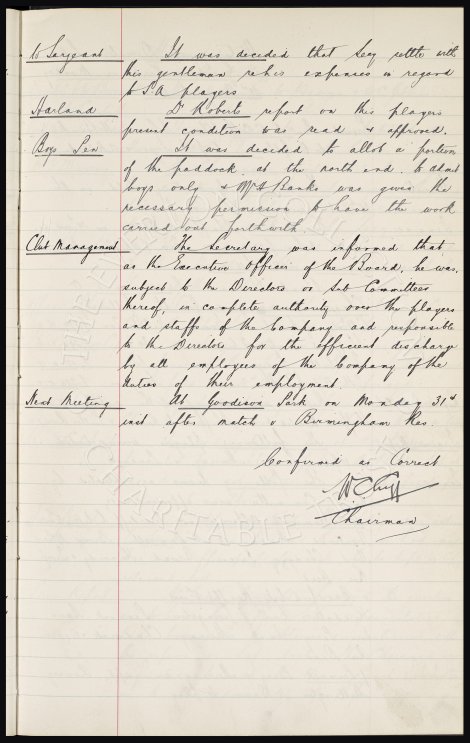 to Sargeant It was decided that Secy settle with
this gentleman re his expenses in regard
to S.A. players
Harland Dr Roberts report on this players
present condition was read & approved.
Boys Pen It was decided to allot a portion
of the paddock at the north end. to admit
boys only & Mr H Banks was given the
necessary permission to have the work
carried out forthwith.
Club Management The Secretary was informed that
as the Executive Officer of the Board, he was,
subject to the Directors or Sub Committees
thereof, in complete authority over the players
and staffs of the Company and responsible
to the Directors for the efficient discharge
by all employees of the Company of the
duties of their employment.
Next Meeting At Goodison Park on Monday 31st
inst after match v Birmingham Res.
Confirmed as Correct
W.C. Cuff
Chairman
THE EVERTON
CHARITABLE